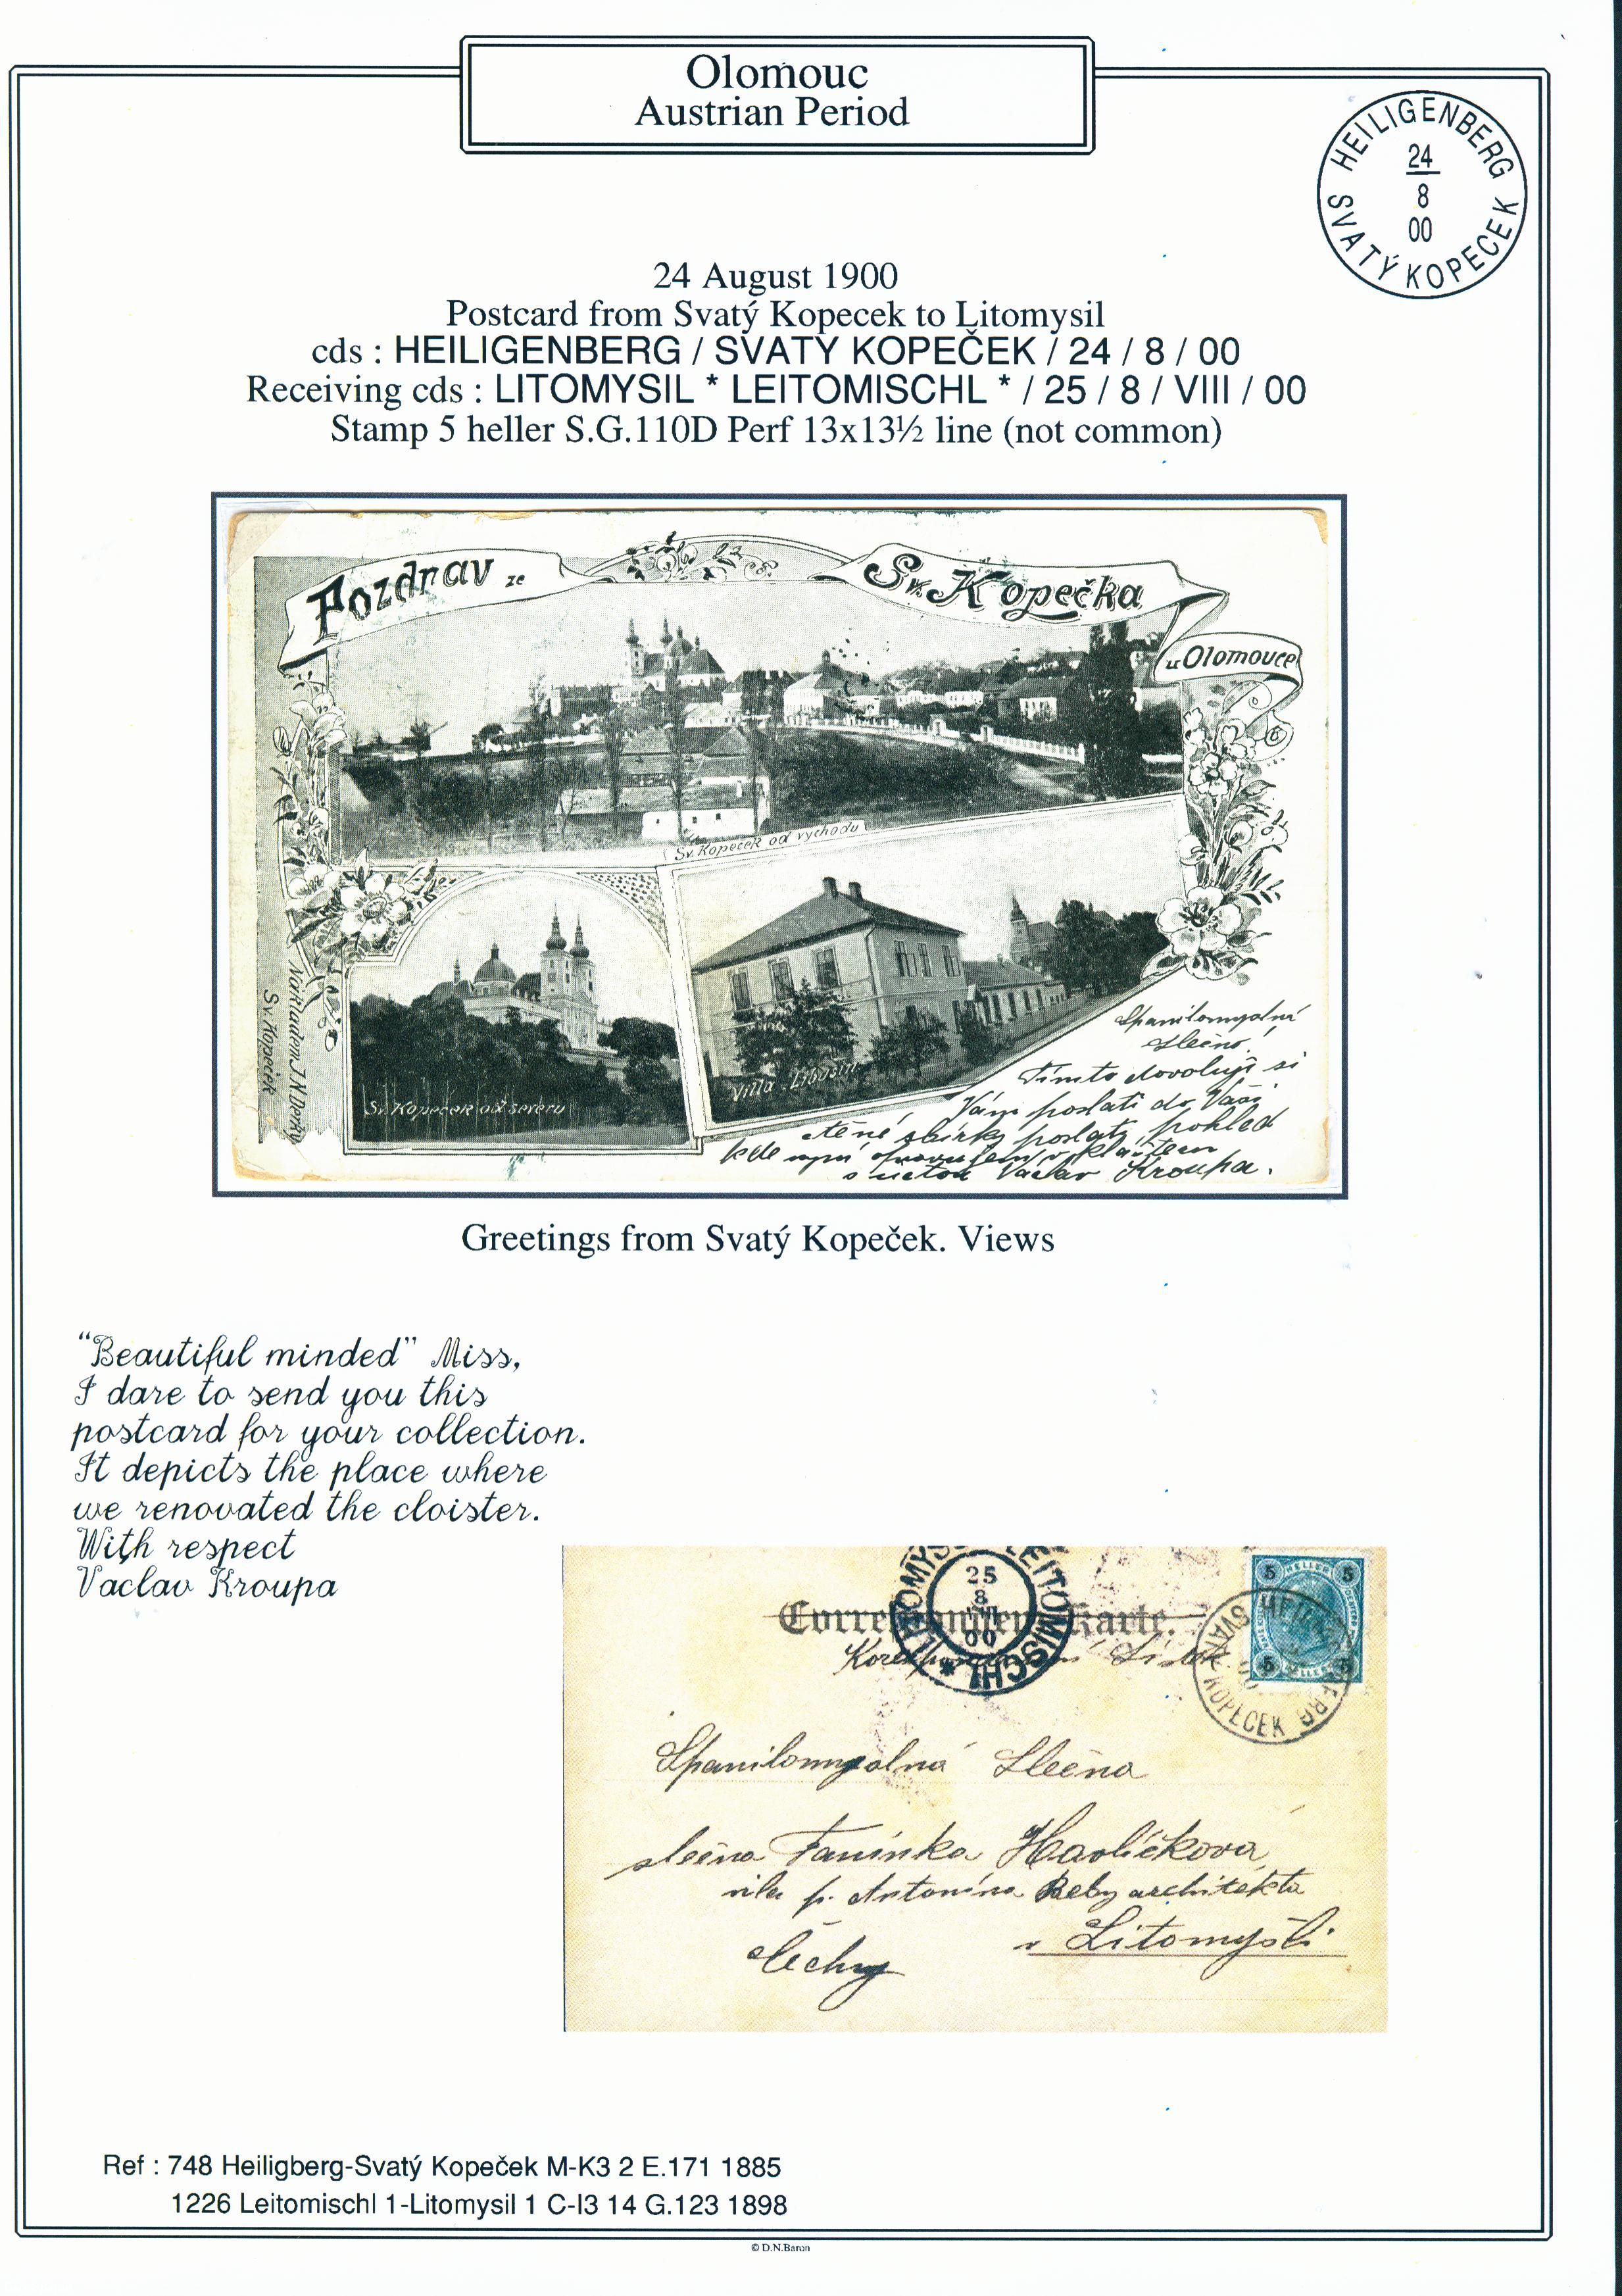 Olomouc
Austrian Period
HEILIGENBERG
24
8
00
SVATÝ KOPECEK
24 August 1900
Postcard from Svatý Kopecek to Litomysil
cds : HEILIGENBERG / SVATY KOPEČEK / 24 / 8 / 00
Receiving cds : LITOMYSIL * LEITOMISCHL * / 25 / 8 / VIII / 00
Stamp 5 heller S.G.110D Perf 13x13½ line (not common)
Pozdrav ze
Sv. Kopečka
u Olomouce
Sv. Kopeček od východu
Sv. Kopeček od severu
Villa Libušin
Nákladem J. N. Derky
Sv. Kopeček
Spanilomyslná
slečno!
Tímto dovoluji si
Vám poslati do Vaší
ctěné sbírky poslati pohled
kde nyní opravujem klášter
s úctou Václav Kroupa.
Greetings from Svatý Kopeček. Views
“Beautiful minded” Miss,
I dare to send you this
postcard for your collection.
It depicts the place where
we renovated the cloister.
With respect
Vaclav Kroupa
5 HELLER 5
5 HELLER 5
25
8
VIII
00
LEITOMISCHL *
SVATÝ KOPECEK
Karte.
Spanilomyslná Slečna
slečna Fanínka Havlíčkova
vila p. Antonína Beby architekta
v Litomyšli
Čechy
Ref : 748 Heiligberg-Svatý Kopeček M-K3 2 E.171 1885
1226 Leitomischl 1-Litomysil 1 C-I3 14 G.123 1898
© D.N.Baron